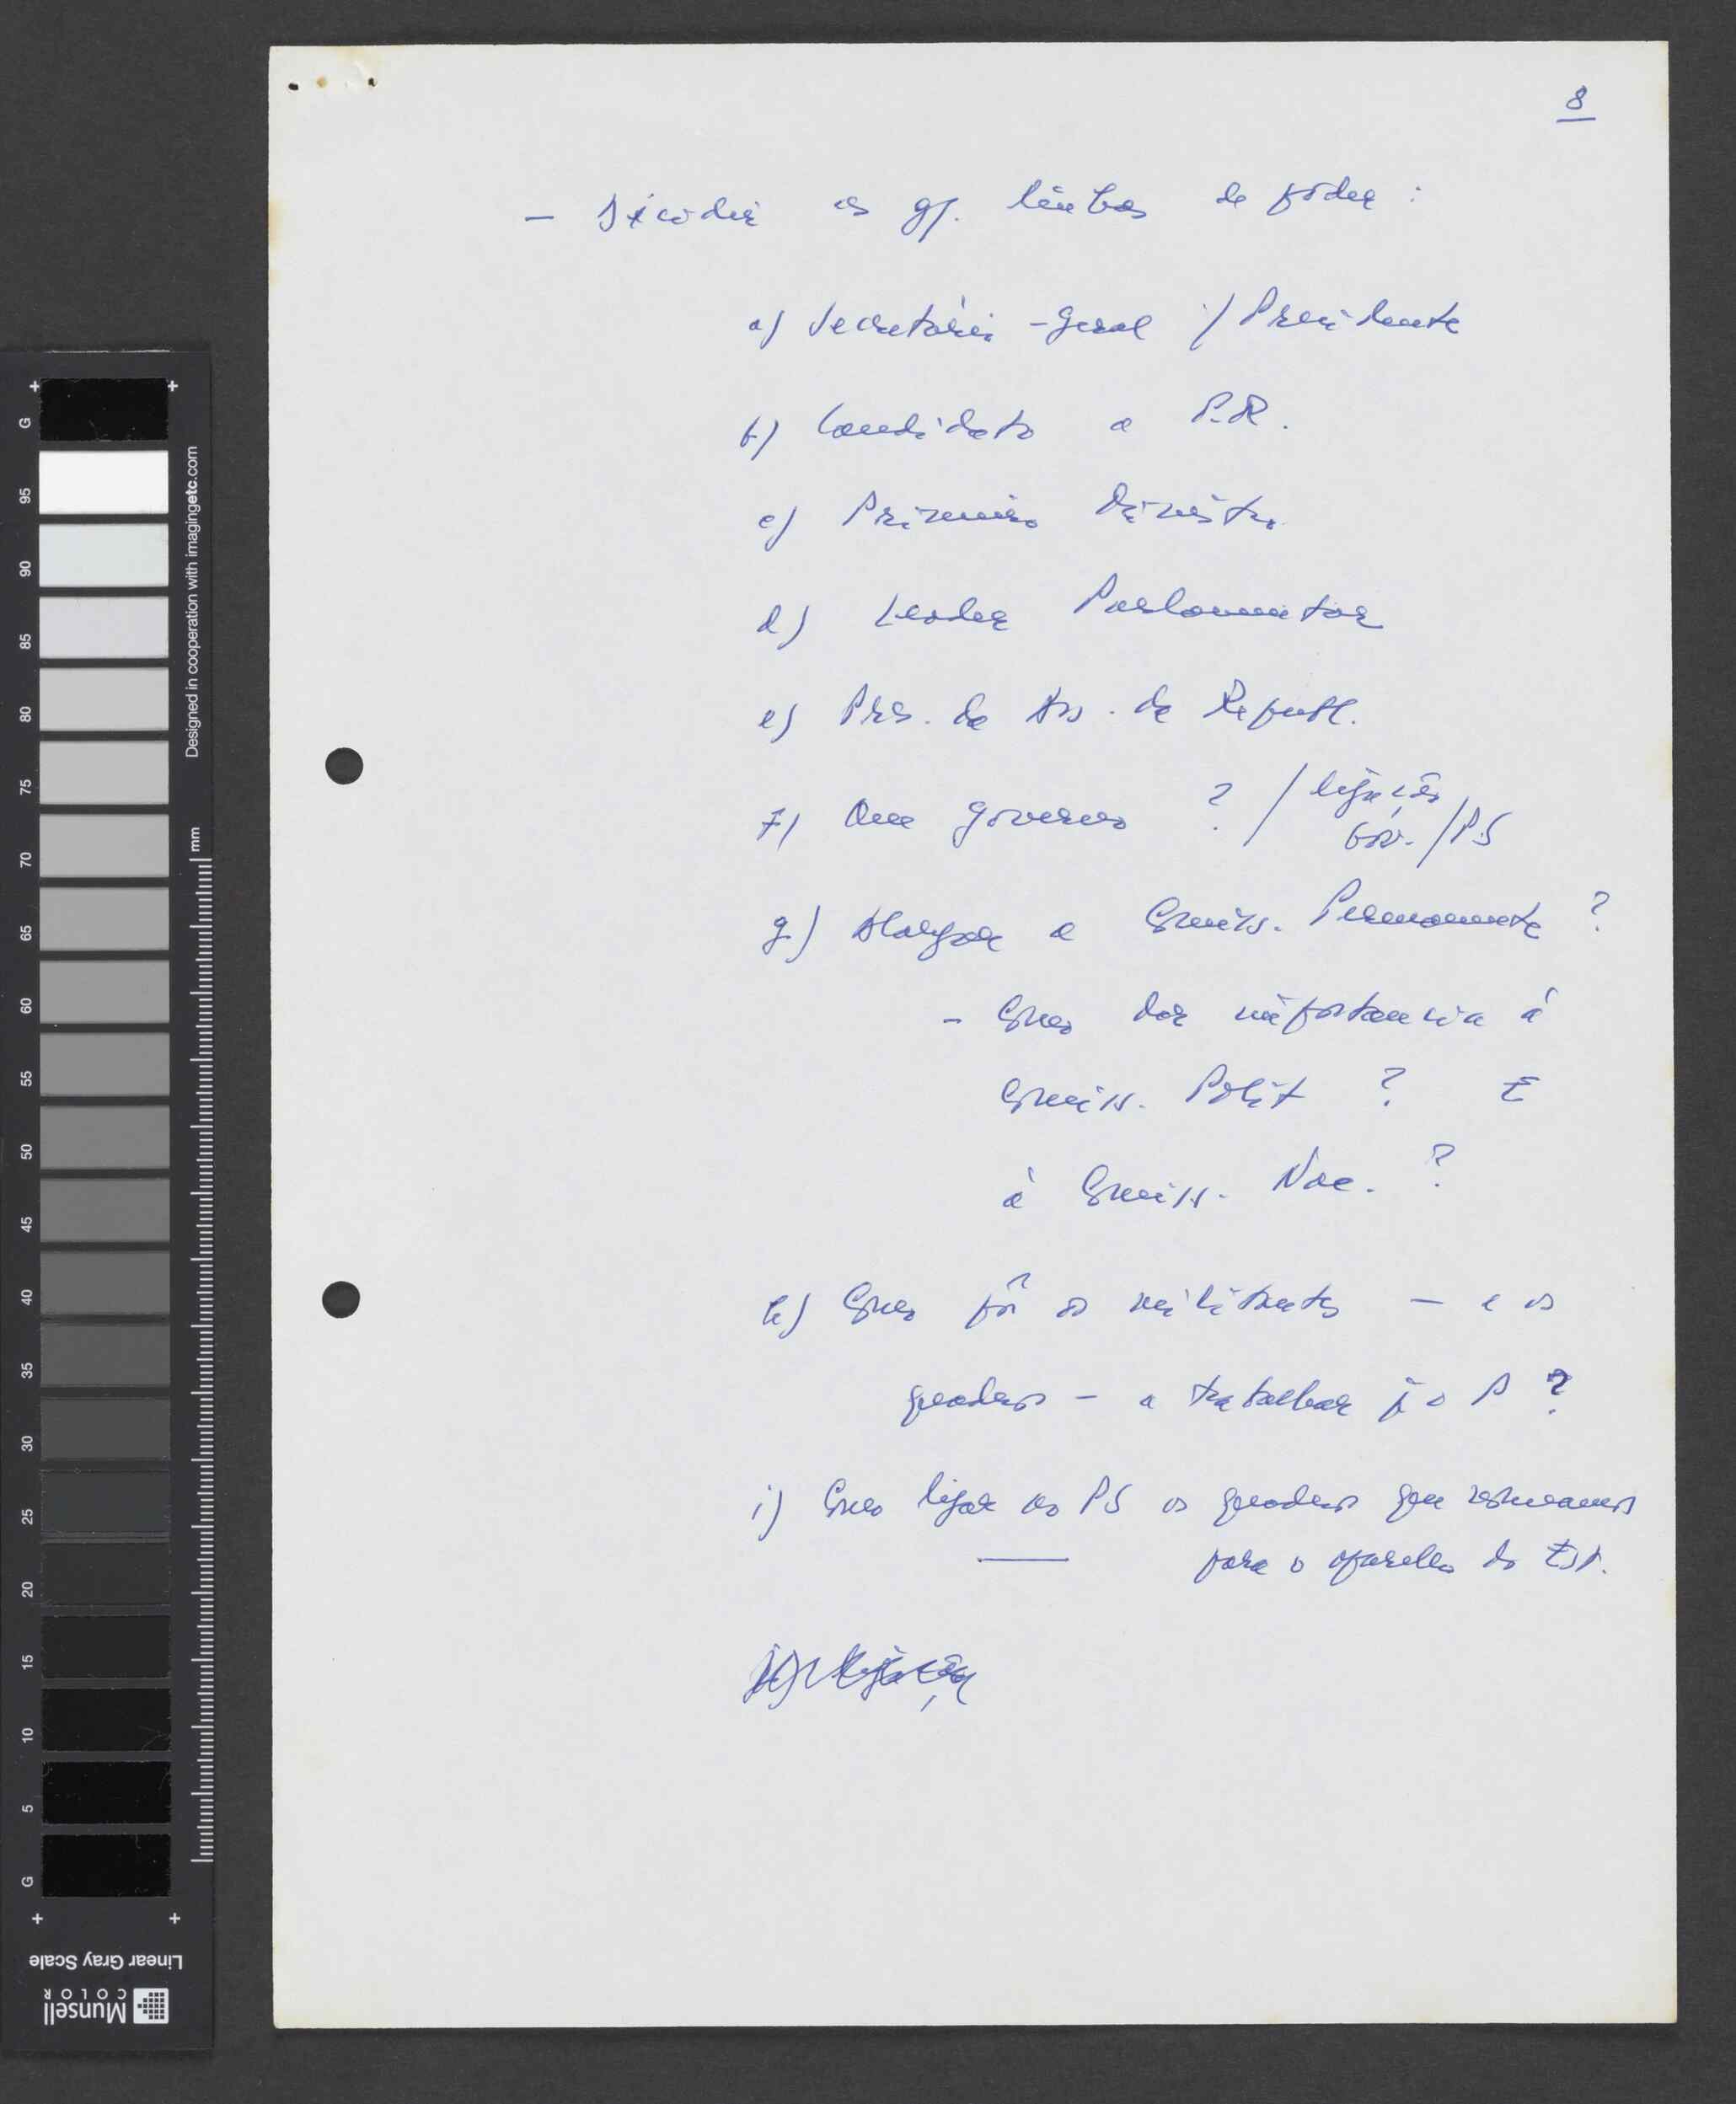 8
- Decidir as gr. linhas de poder :
a) Secretário-Geral / Presidente
b) Candidato a P.R.
c) Primeiro Ministro
d) Leader Parlamentar
e) Pres. da Ass. da Republ.
f) Que Governo ? / ligação
Gov. / PS
g) Alargar a Comiss. Permanente ?
- Como dar importancia à
Comiss. Polit ? E
à Comiss. Nac. ?
h) Como pôr os militantes - e os
quadros - a trabalhar p. o P ?
i) Como ligar ao PS os quadros que
para o aparelho do Est.
G 95 90 85 80 75 70 65 60 55 50 45 40 35 30 25 20 15 10 5 G
Designed in cooperation with imagingetc.com
mm
Linear Gray Scale
Munsell
COLOR